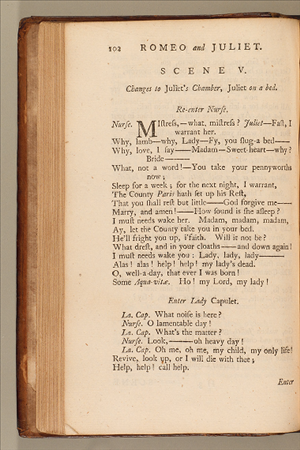 102 ROMEO and JULIET.
SCENE V.
Changes to Juliet's Chamber, Juliet on a bed.
Re-enter Nurse.
Nurse. MIstress,—what, mistress? Juliet—Fast, I
warrant her.
Why, lamb—why, Lady—Fy, you slug-a bed——
Why, love, I say——Madam—Sweet-heart—why?
Bride———
What, not a word!—You take your pennyworths
now;
Sleep for a week; for the next night, I warrant,
The County Paris hath set up his Rest,
That you shall rest but little——God forgive me——
Marry, and amen!——How sound is she asleep?
I must needs wake her. Madam, madam, madam,
Ay, let the County take you in your bed.
He'll fright you up, i'faith. Will it not be?
What drest, and in your cloaths——and down again!
I must needs wake you: Lady, lady, lady———
Alas! alas! help! help! my lady's dead.
O, well-a-day, that ever I was born!
Some Aqua-vitæ. Ho! my Lord, my lady!
Enter Lady Capulet.
La. Cap. What noise is here?
Nurse. O lamentable day!
La. Cap. What's the matter?
Nurse. Look,———oh heavy day!
La. Cap. Oh me, oh me, my child, my only life!
Revive, look up, or I will die with thee;
Help, help! call help.
Enter